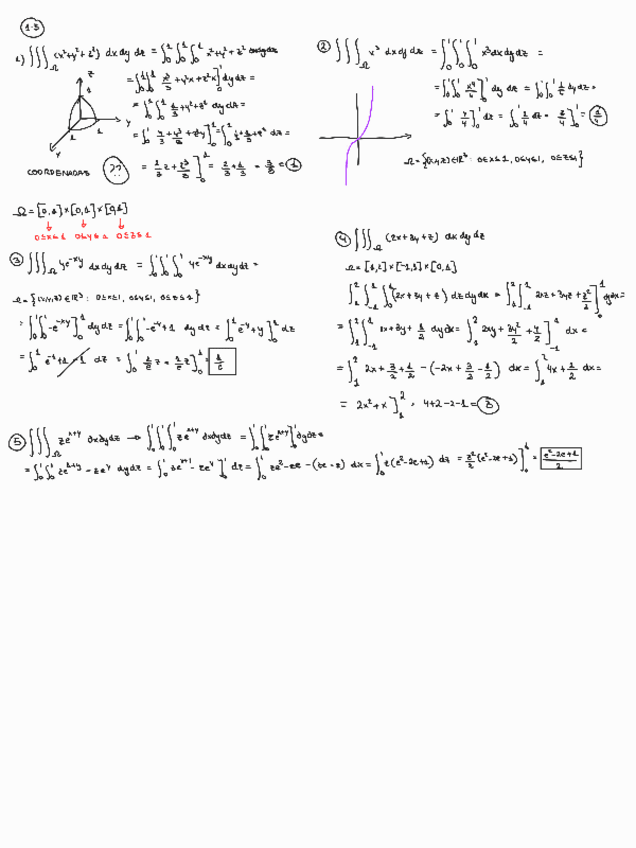 1-5
1) ∭_Ω (x²+y²+z²) dx dy dz = ∫₀¹ ∫₀¹ ∫₀¹ x²+y²+z² dxdydz
= ∫₀¹ ∫₀¹ x³/3 + y²x + z²x ]₀¹ dydz =
= ∫₀¹ ∫₀¹ 1/3 + y² + z² dy dz =
= ∫₀¹ y/3 + y³/3 + z²y ]₀¹ = ∫₀¹ 1/3 + 1/3 + z² dz =
= 2/3 z + z³/3 ]₀¹ = 2/3 + 1/3 = 3/3 = 1
z
1
1
1
x
y
COORDENADAS ??
Ω = [0,1] × [0,1] × [0,1]
0≤x≤1 0≤y≤1 0≤z≤1
2 ∭_Ω x³ dx dy dz = ∫₀¹ ∫₀¹ ∫₀¹ x³ dx dy dz =
= ∫₀¹ ∫₀¹ x⁴/4 ]₀¹ dy dz = ∫₀¹ ∫₀¹ 1/4 dy dz =
= ∫₀¹ y/4 ]₀¹ dz = ∫₀¹ 1/4 dz = z/4 ]₀¹ = 1/4
Ω = {(x,y,z) ∈ ℝ³ : 0≤x≤1, 0≤y≤1, 0≤z≤1}
3 ∭_Ω 4e^-xy dx dy dz = ∫₀¹ ∫₀¹ ∫₀¹ 4e^-xy dx dy dz =
Ω = {(x,y,z) ∈ ℝ³ : 0≤x≤1, 0≤y≤1, 0≤z≤1}
= ∫₀¹ ∫₀¹ -e^-xy ]₀¹ dy dz = ∫₀¹ ∫₀¹ -e^-y +1 dy dz = ∫₀¹ e^-y + y ]₀¹ dz
= ∫₀¹ e^-1 +1 -1 dz = ∫₀¹ 1/e z = 1/e z ]₀¹ = 1/e
4 ∭_Ω (2x+3y+z) dx dy dz
Ω = [1,2] × [-1,1] × [0,1]
∫₁² ∫₋₁¹ ∫₀¹ (2x+3y+z) dz dy dx = ∫₁² ∫₋₁¹ 2xz + 3yz + z²/2 ]₀¹ dy dx =
= ∫₁² ∫₋₁¹ 2x+3y+ 1/2 dy dx = ∫₁² 2xy + 3y²/2 + y/2 ]₋₁¹ dx =
= ∫₁² 2x + 3/2 + 1/2 - (-2x + 3/2 - 1/2) dx = ∫₁² 4x + 2/2 dx =
= 2x² + x ]₁²
5 ∭_Ω ze^x+y dx dy dz → ∫₀¹ ∫₀¹ ∫₀¹ ze^x+y dx dy dz = ∫₀¹ ∫₀¹ ze^x+y ]₀¹ dy dz =
= ∫₀¹ ∫₀¹ ze^1+y - ze^y dy dz = ∫₀¹ ze^y+1 - ze^y ]₀¹ dz = ∫₀¹ ze² - ze - (ze - z) dx = ∫₀¹ z(e² - 2e + 1) dz = z²/2 (e² - 2e + 1) ]₀¹ = e² - 2e + 1 / 2